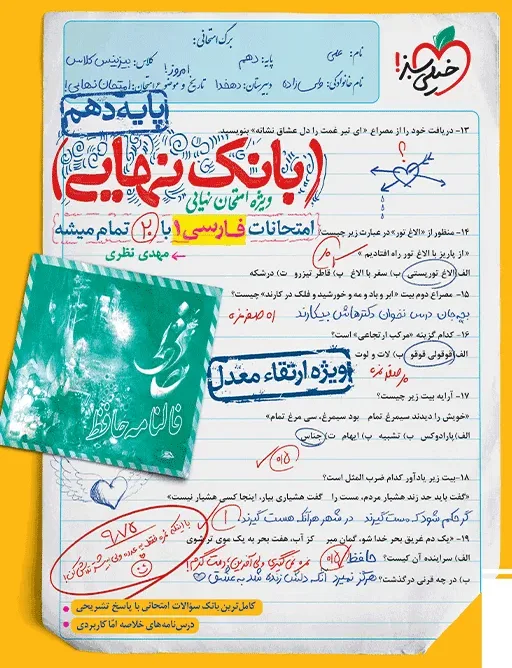 خیلی سبز!
برگ امتحانی:
نام: علی
پایه: دهم
کلاس: بیزینس کلاس
نام خانوادگی: ولی‌زاده
دبیرستان: دهخدا
تاریخ و موضوع امتحان: امتحان نهایی!
امروز!
پایه دهم
۱۳- دریافت خود را از مصراع «ای تیر غمت را دل عشاق نشانه» بنویسید.
؟
(بانک نهایی)
ویژه امتحان نهایی
۱۴- منظور از «الاغ تور» در عبارت زیر چیست؟
امتحانات فارسی ۱ با ۲۰ تمام میشه
«از پاریز با الاغ تور راه افتادیم»
مهدی نظری
الف) الاغ توریستی ب) سفر با الاغ پ) قاطر تیزرو ت) درشکه
۱۵- مصراع دوم بیت «ابر و باد و مه و خورشید و فلک در کارند» چیست؟
بچه‌جان درس نخوان دکترهاش بیکارند
۱۶- کدام گزینه «مرکب ارتجاعی» است؟
الف) قوقولی قوقو ب) لات و لوت
ویژه ارتقاء معدل
۱۷- آرایه بیت زیر چیست؟
«خویش را دیدند سیمرغ تمام بود سیمرغ، سی مرغ تمام»
الف) پارادوکس ب) تشبیه پ) ایهام ت) جناس
فالنامه حافظ
۰/۵
۱۸- بیت زیر یادآور کدام ضرب المثل است؟
«گفت باید حد زند هشیار مردم، مست را گفت هشیاری بیار، اینجا کسی هشیار نیست»
گر حکم شود که مست گیرند در شهر هر آنکه هست گیرند
۱
۱۹- «یک دم غریق بحر خدا شو، گمان مبر کز آب، هفت بحر به یک موی تر شوی
الف) سراینده آن کیست؟ حافظ
۰/۵
ب) در چه قرنی درگذشت؟ هرگز نمیرد آنکه دلش زنده شد به عشق
۹/۷۵
کامل‌ترین بانک سؤالات امتحانی با پاسخ تشریحی
درس‌نامه‌های خلاصه امّا کاربردی